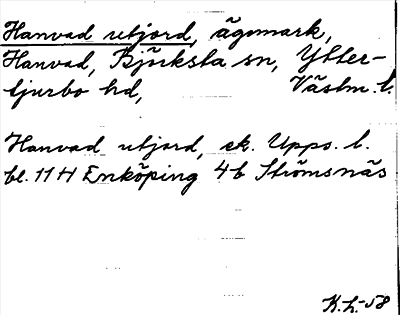 Hanvad utjord, ägomark,
Hanvad, Björksta sn, Ytter-
tjurbo hd, Västm. l.
Hanvad utjord, ek. Upps. l.
bl. 11 H Enköping 4 b Strömsnäs
K.h.-58